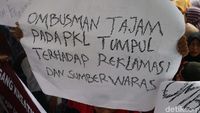 OMBUSMAN TAJAM
PADA PKL TUMPUL
TERHADAP REKLAMASI
DAN SUMBER WARAS
detikcom